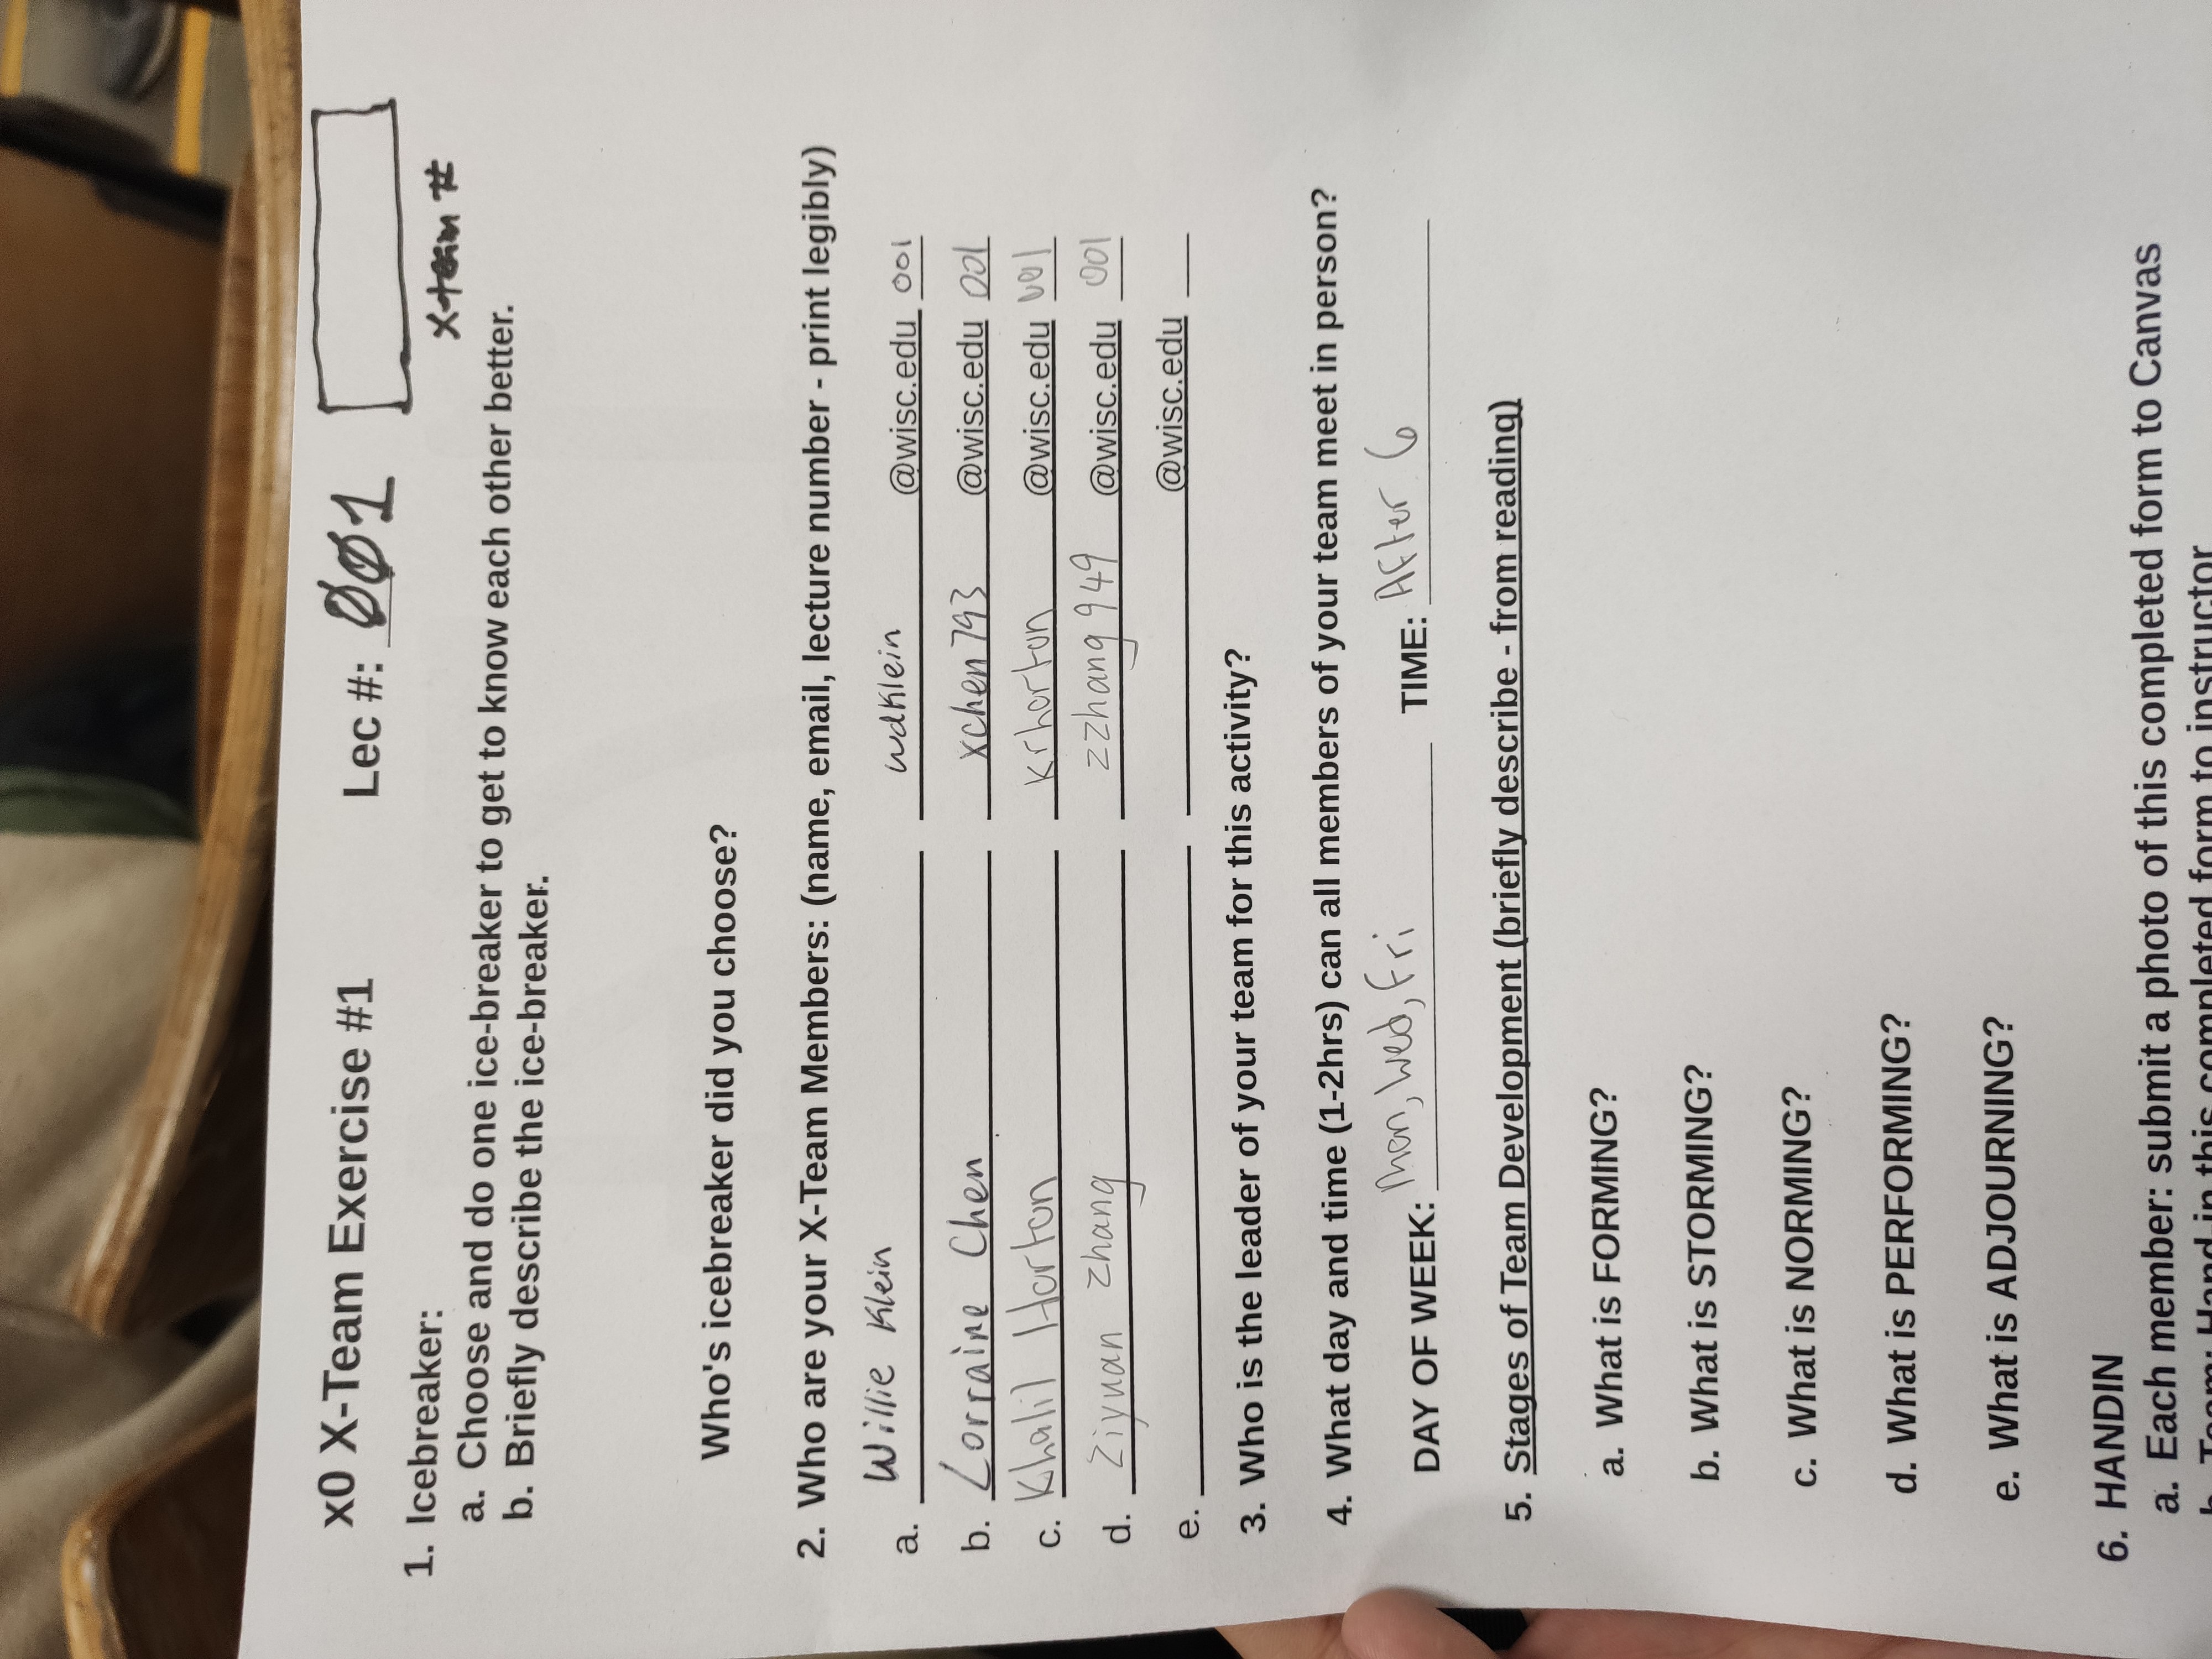 x0 X-Team Exercise #1 Lec #: 001
X-team #
1. Icebreaker:
a. Choose and do one ice-breaker to get to know each other better.
b. Briefly describe the ice-breaker.
Who's icebreaker did you choose?
2. Who are your X-Team Members: (name, email, lecture number - print legibly)
a. Willie Klein wdklein @wisc.edu 001
b. Lorraine Chen xchen793 @wisc.edu 001
c. Khalil Horton krhorton @wisc.edu 001
d. Ziyuan Zhang zzhang949 @wisc.edu 001
e. @wisc.edu
3. Who is the leader of your team for this activity?
4. What day and time (1-2hrs) can all members of your team meet in person?
DAY OF WEEK: Mon, Wed, Fri TIME: After 6
5. Stages of Team Development (briefly describe - from reading)
a. What is FORMING?
b. What is STORMING?
c. What is NORMING?
d. What is PERFORMING?
e. What is ADJOURNING?
6. HANDIN
a. Each member: submit a photo of this completed form to Canvas
b. Team: Hand-in this completed form to instructor